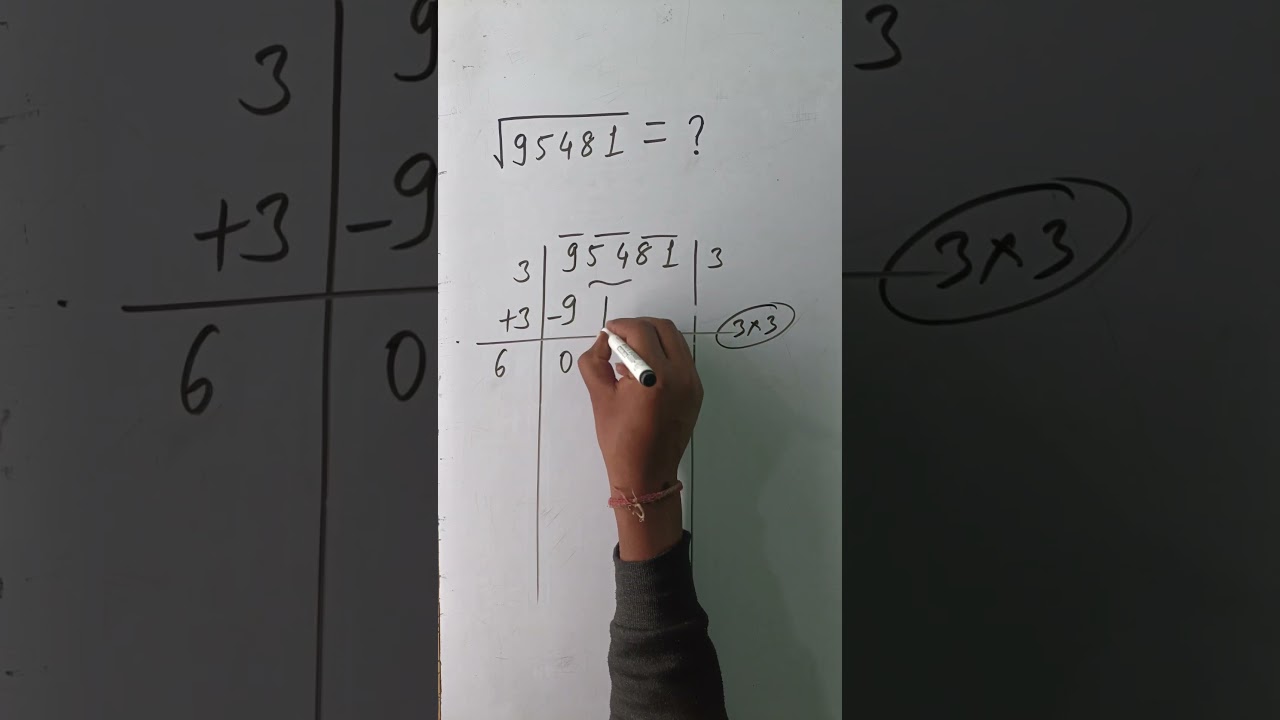 √95481 = ?
3 | 95481 | 3
+3 | -9
3×3
6 | 0